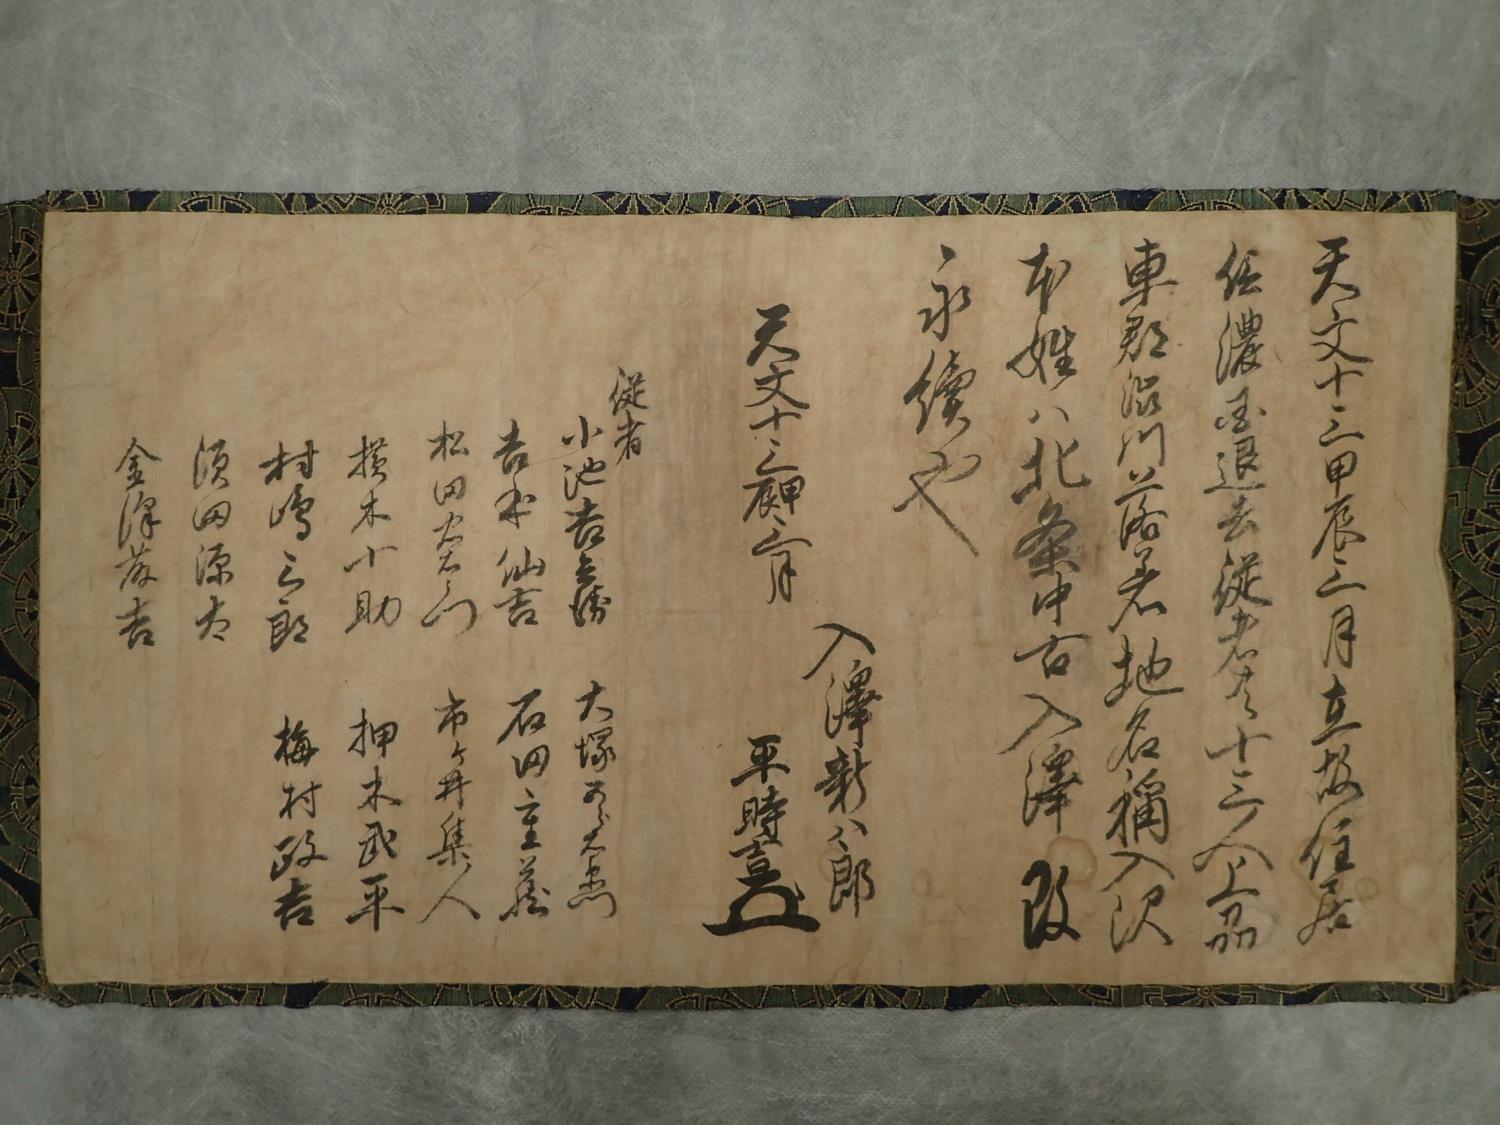 天文十三甲辰三月立故住居
信濃国退去従者共十三人上品
東郡渋川落着地名稱入沢
本姓八北条中古入澤改
永續也
天文十三甲辰三月
入澤新八郎
平時喜
従者
小池吉兵衛 大塚
吉本仙吉 石田主蔵
松田 市ヶ井集人
横木小助 押木武平
村嶋三郎 梅村政吉
須田源太
金澤藤吉